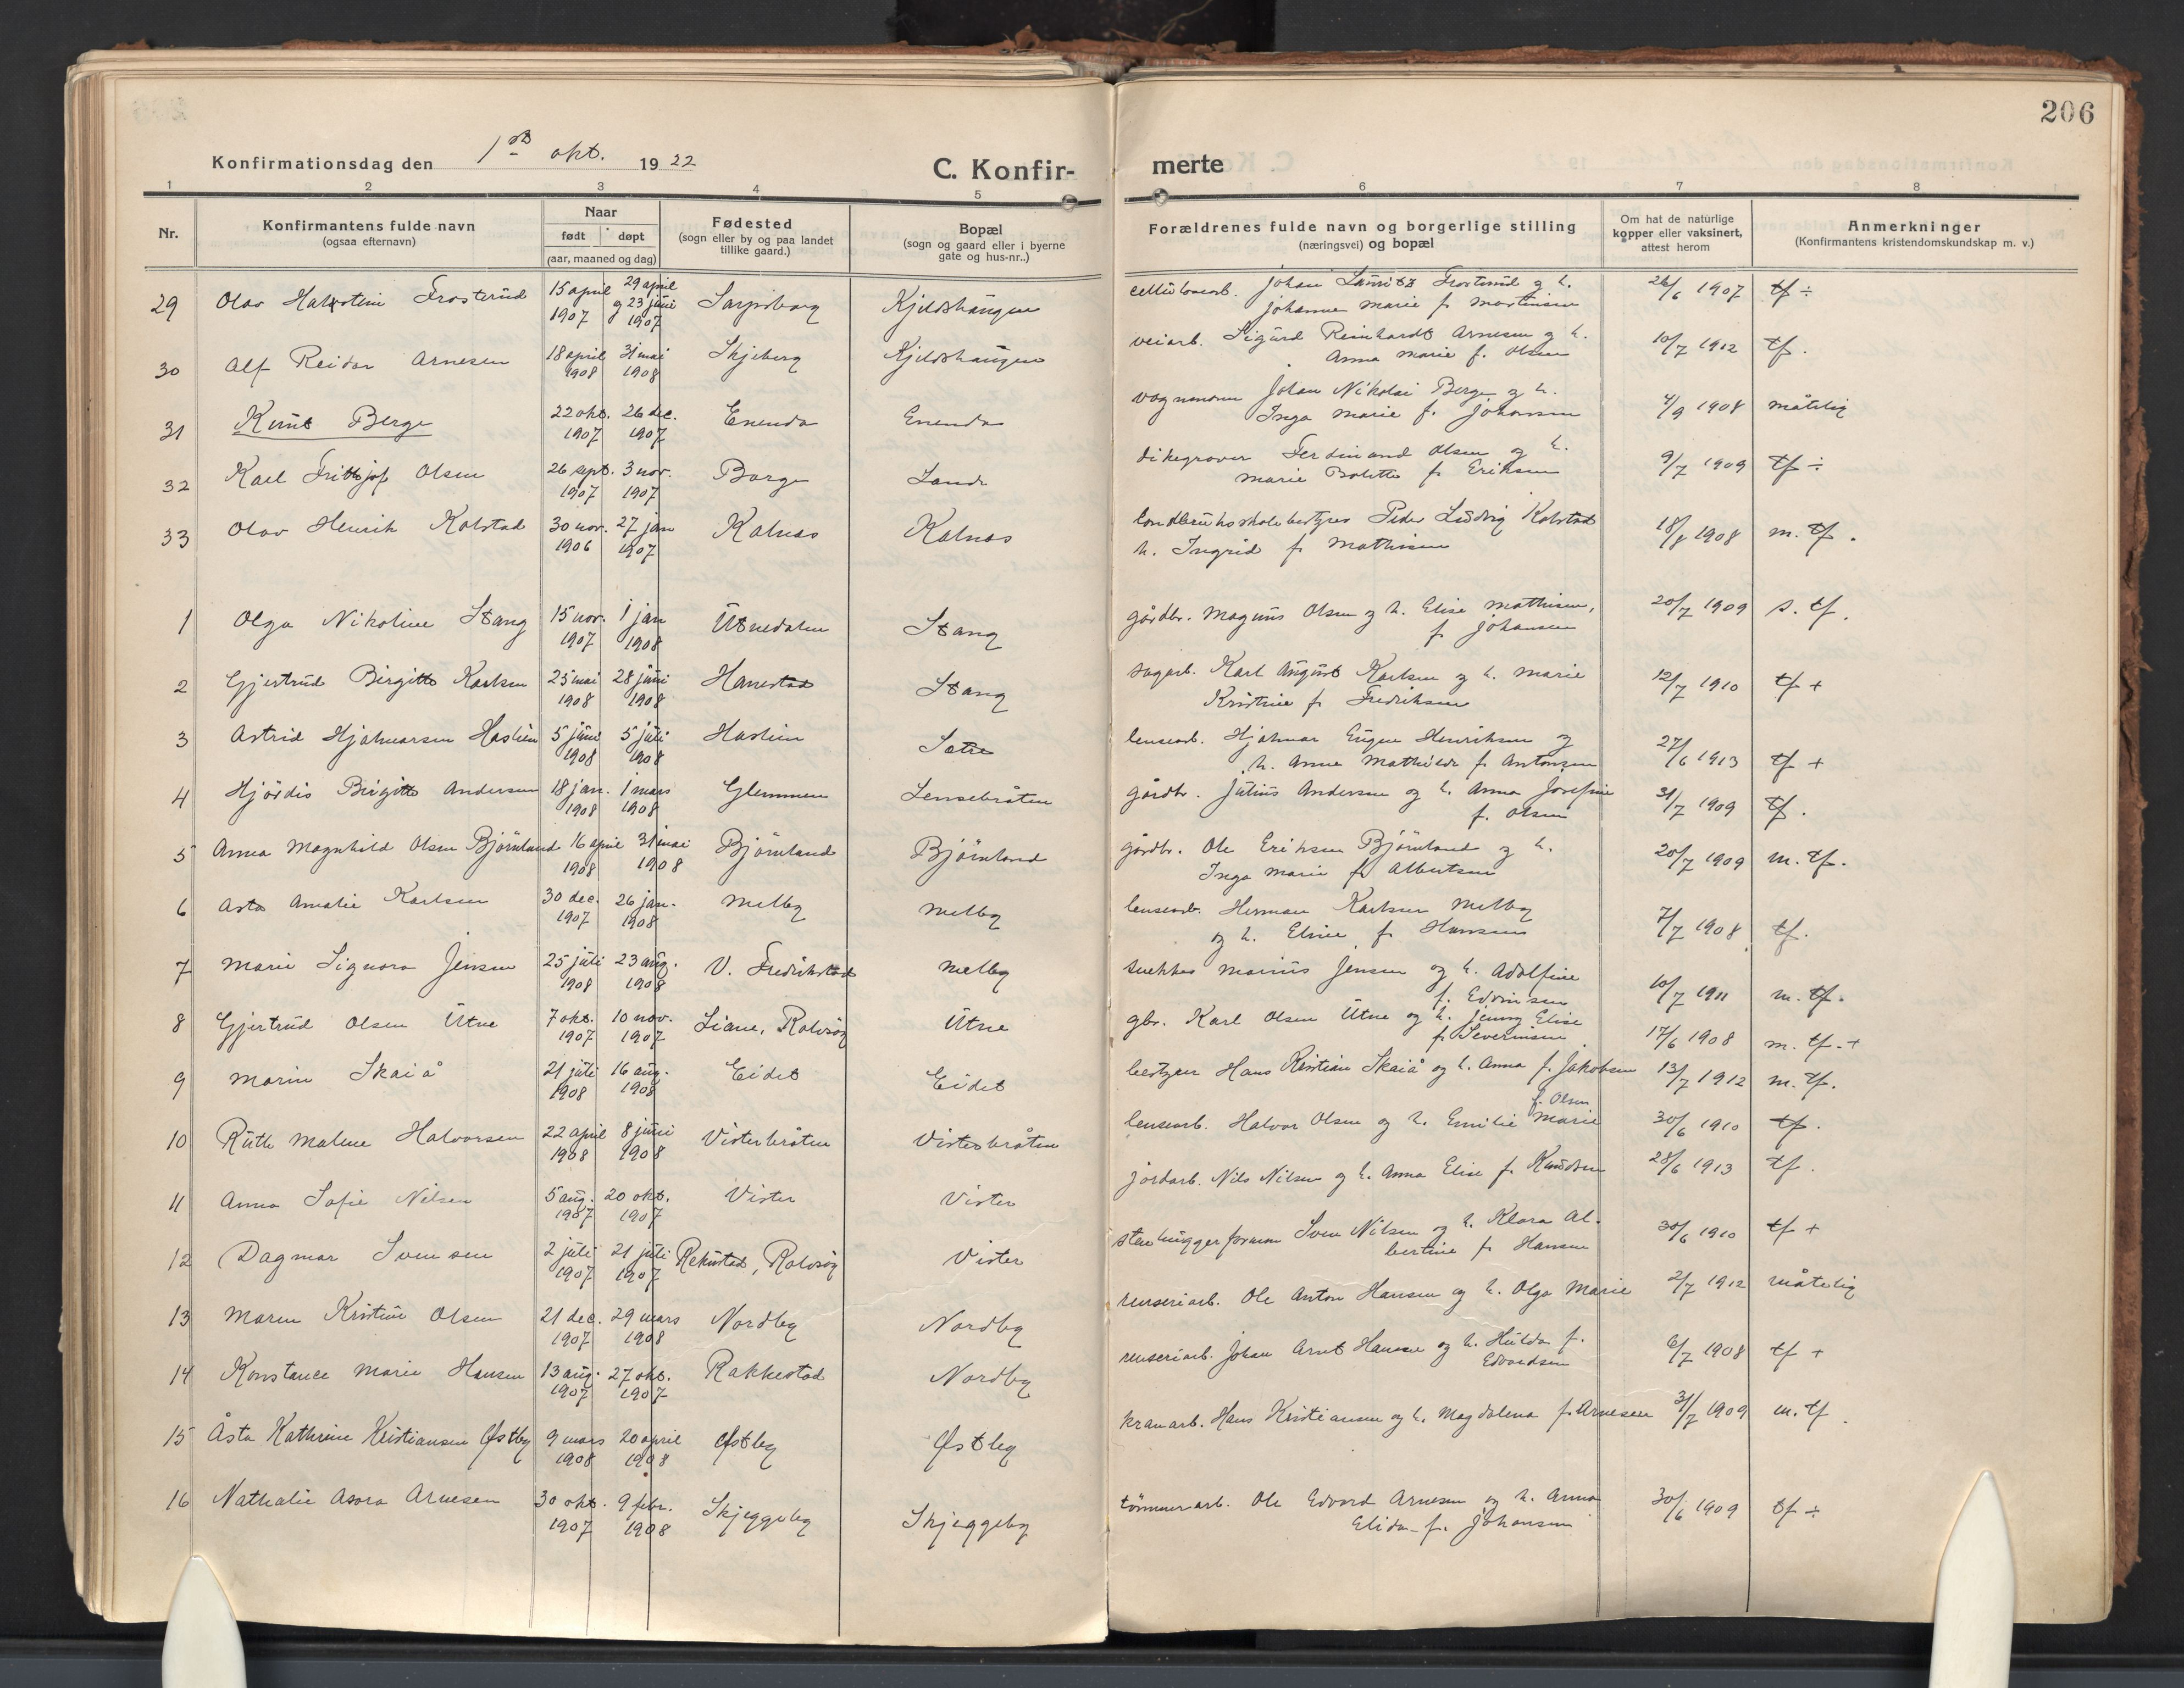 206
Konfirmationsdag den 1ste okt. 1922
C. Konfir-
merte
1 2 3 4 5 6 7 8
Nr.
Konfirmantens fulde navn
(ogsaa efternavn)
Naar
født døpt
(aar, maaned og dag)
Fødested
(sogn eller by og paa landet
tillike gaard.)
Bopæl
(sogn og gaard eller i byerne
gate og hus-nr..)
Forældrenes fulde navn og borgerlige stilling
(næringsvei) og bopæl
Om hat de naturlige
kopper eller vaksinert,
attest herom
Anmerkninger
(Konfirmantens kristendomskundskap m. v.)
29 Olav Halvstein Frosterud 15 april 1907 29 april g 23 juni 1907 Sarpsborg Kjeldshaugen
celluloosearb. Johan Lauritz Frosterud g h.
Johanne Marie f Martinsen 26/6 1907 tf ÷
30 Alf Reidar Arnesen 18 april 1908 31 mai 1908 Skjeberg Kjeldshaugen
veiarb. Sigurd Reinhardt Arnesen g h.
Anna Marie f. Olsen 10/7 1912 tf.
31 Knut Berge 22 okt. 1907 26 dec. 1907 Enenda Enenda
vognmann Johan Nikolai Berge g h.
Inga Marie f. Johansen 4/9 1908 måtelig
32 Karl Frithjof Olsen 26 sept. 1907 3 nov. 1907 Borge Lande
dikegraver Ferdinand Olsen og h.
Marie Bolette f Eriksen 9/7 1909 tf ÷
33 Olav Henrik Kolstad 30 nov. 1906 27 jan 1907 Kalnes Kalnes
landbruksskolebestyrer Peder Ludvig Kolstad
h. Ingrid f Mathisen 18/8 1908 m. tf.
1 Olga Nikoline Stang 15 nov. 1907 1 jan 1908 Utnedalen Stang
gårdbr. Magnus Olsen g h. Elise Mathisen,
f Johansen 20/7 1909 s. tf.
2 Gjertrud Birgitte Karlsen 25 mai 1908 28 juni 1908 Hanestad Stang
sagarb. Karl August Karlsen g h. Marie
Kristine f Fredriksen 12/7 1910 tf +
3 Astrid Hjalmarsen Haslien 5 juni 1908 5 juli 1908 Haslien Sætre
lensearb. Hjalmar Eugen Henriksen og
h. Anne Mathilde f Antonsen 27/6 1913 tf +
4 Hjördis Birgitte Andersen 18 jan. 1908 1 mars 1908 Glemmen Lensebråten
gårdbr. Julius Andersen og h. Anna Josefine
f. Olsen 31/7 1909 tf.
5 Anna Magnhild Olsen Björnland 16 april 1908 31 mai 1908 Björnland Björnland
gårdbr. Ole Eriksen Björnland g h.
Inga Marie f Albertsen 20/7 1909 m. tf.
6 Asta Amalie Karlsen 30 dec. 1907 26 jan. 1908 Melleby Melleby
lensearb. Herman Karlsen Melleby
og h. Eline f Hansen 7/7 1908 tf.
7 Marie Signora Jensen 25 juli 1908 23 aug. 1908 V. Fredrikstad Melleby
snekker Marius Jensen og h. Adolfine
f. Edvinsen 10/7 1911 m. tf.
8 Gjertrud Olsen Utne 7 okt. 1907 10 nov. 1907 Liane, Rolvsöy Utne
gbr. Karl Olsen Utne og h. Jenny Elise
f. Severinsen 17/6 1908 m. tf. +
9 Marie Skaiå 21 juli 1908 16 aug. 1908 Eidet Eidet
bestyrer Hans Kristian Skaiå og h. Anna f. Jakobsen 13/7 1912 m. tf.
10 Ruth Malene Halvorsen 22 april 1908 8 juni 1908 Visterbråten Visterbråten
lensearb. Halvor Olsen og h. Emilie Marie f. Olsen 30/6 1910 tf.
11 Anna Sofie Nilsen 5 aug. 1907 20 okt. 1907 Vister Vister
jordarb. Nils Nilsen og h. Anna Elise f Knudsen 28/6 1913 tf.
12 Dagmar Svensen 2 juli 1907 21 juli 1907 Rekustad, Rolvsöy Vister
stenhuggerformn Sven Nilsen og h. Klara Al-
bertine f Hansen 30/6 1910 tf +
13 Maren Kristine Olsen 21 dec. 1907 29 mars 1908 Nordby Nordby
renseriarb. Ole Anton Hansen og h. Olga Marie 2/7 1912 måtelig
14 Konstance Marie Hansen 13 aug. 1907 27 okt. 1907 Rakkestad Nordby
renseriarb. Johan Arnt Hansen og h. Hulda f.
Edvardsen 6/7 1908 tf +
15 Åsta Kathrine Kristiansen Østby 9 mars 1908 20 april 1908 Østby Østby
kranarb. Hans Kristiansen og h. Magdalena f. Arnesen 31/7 1909 m. tf.
16 Nathalie Asora Arnesen 30 okt. 1907 9 febr. 1908 Skjeggeby Skjeggeby
tömmerarb. Ole Edvard Arnesen og h. Anna
Elida f. Johansen 30/6 1909 tf ÷